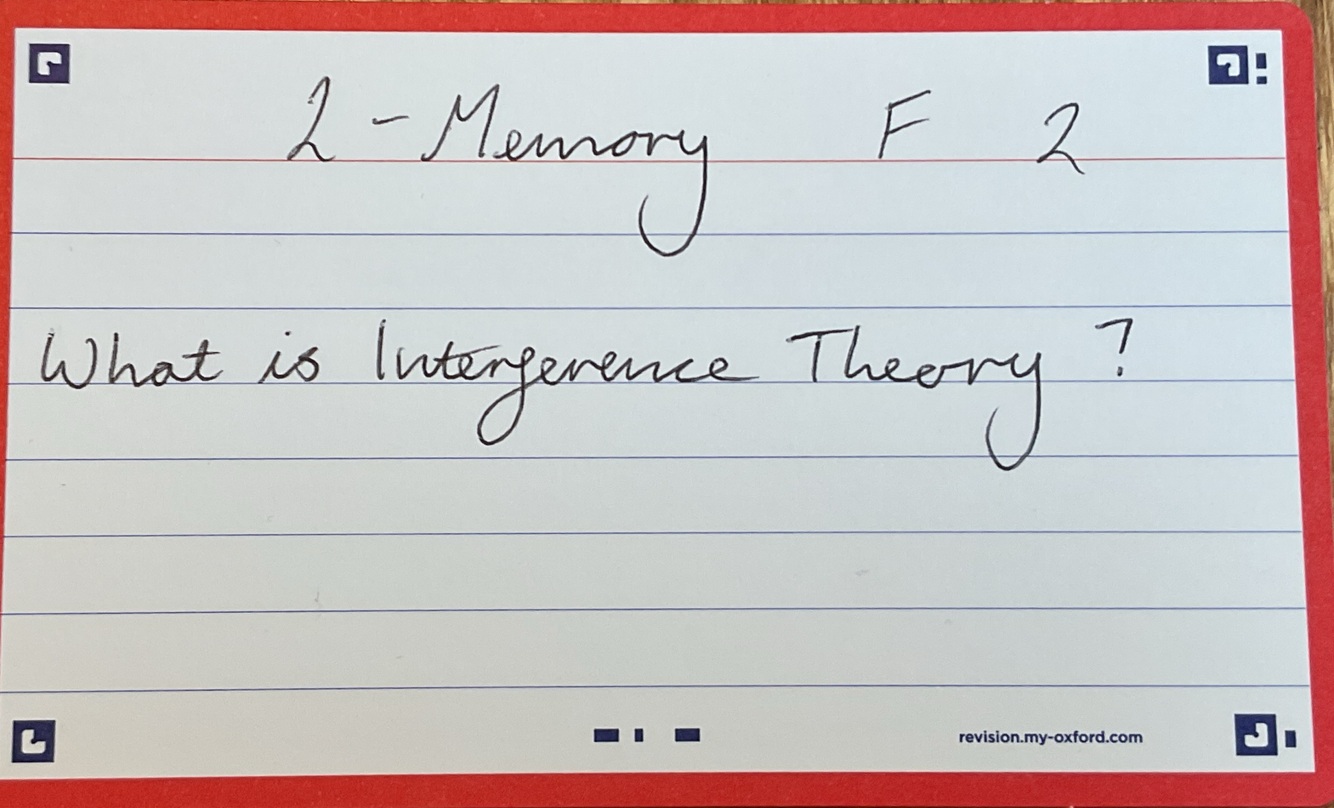 2 - Memory F 2
What is Interference Theory?
revision.my-oxford.com